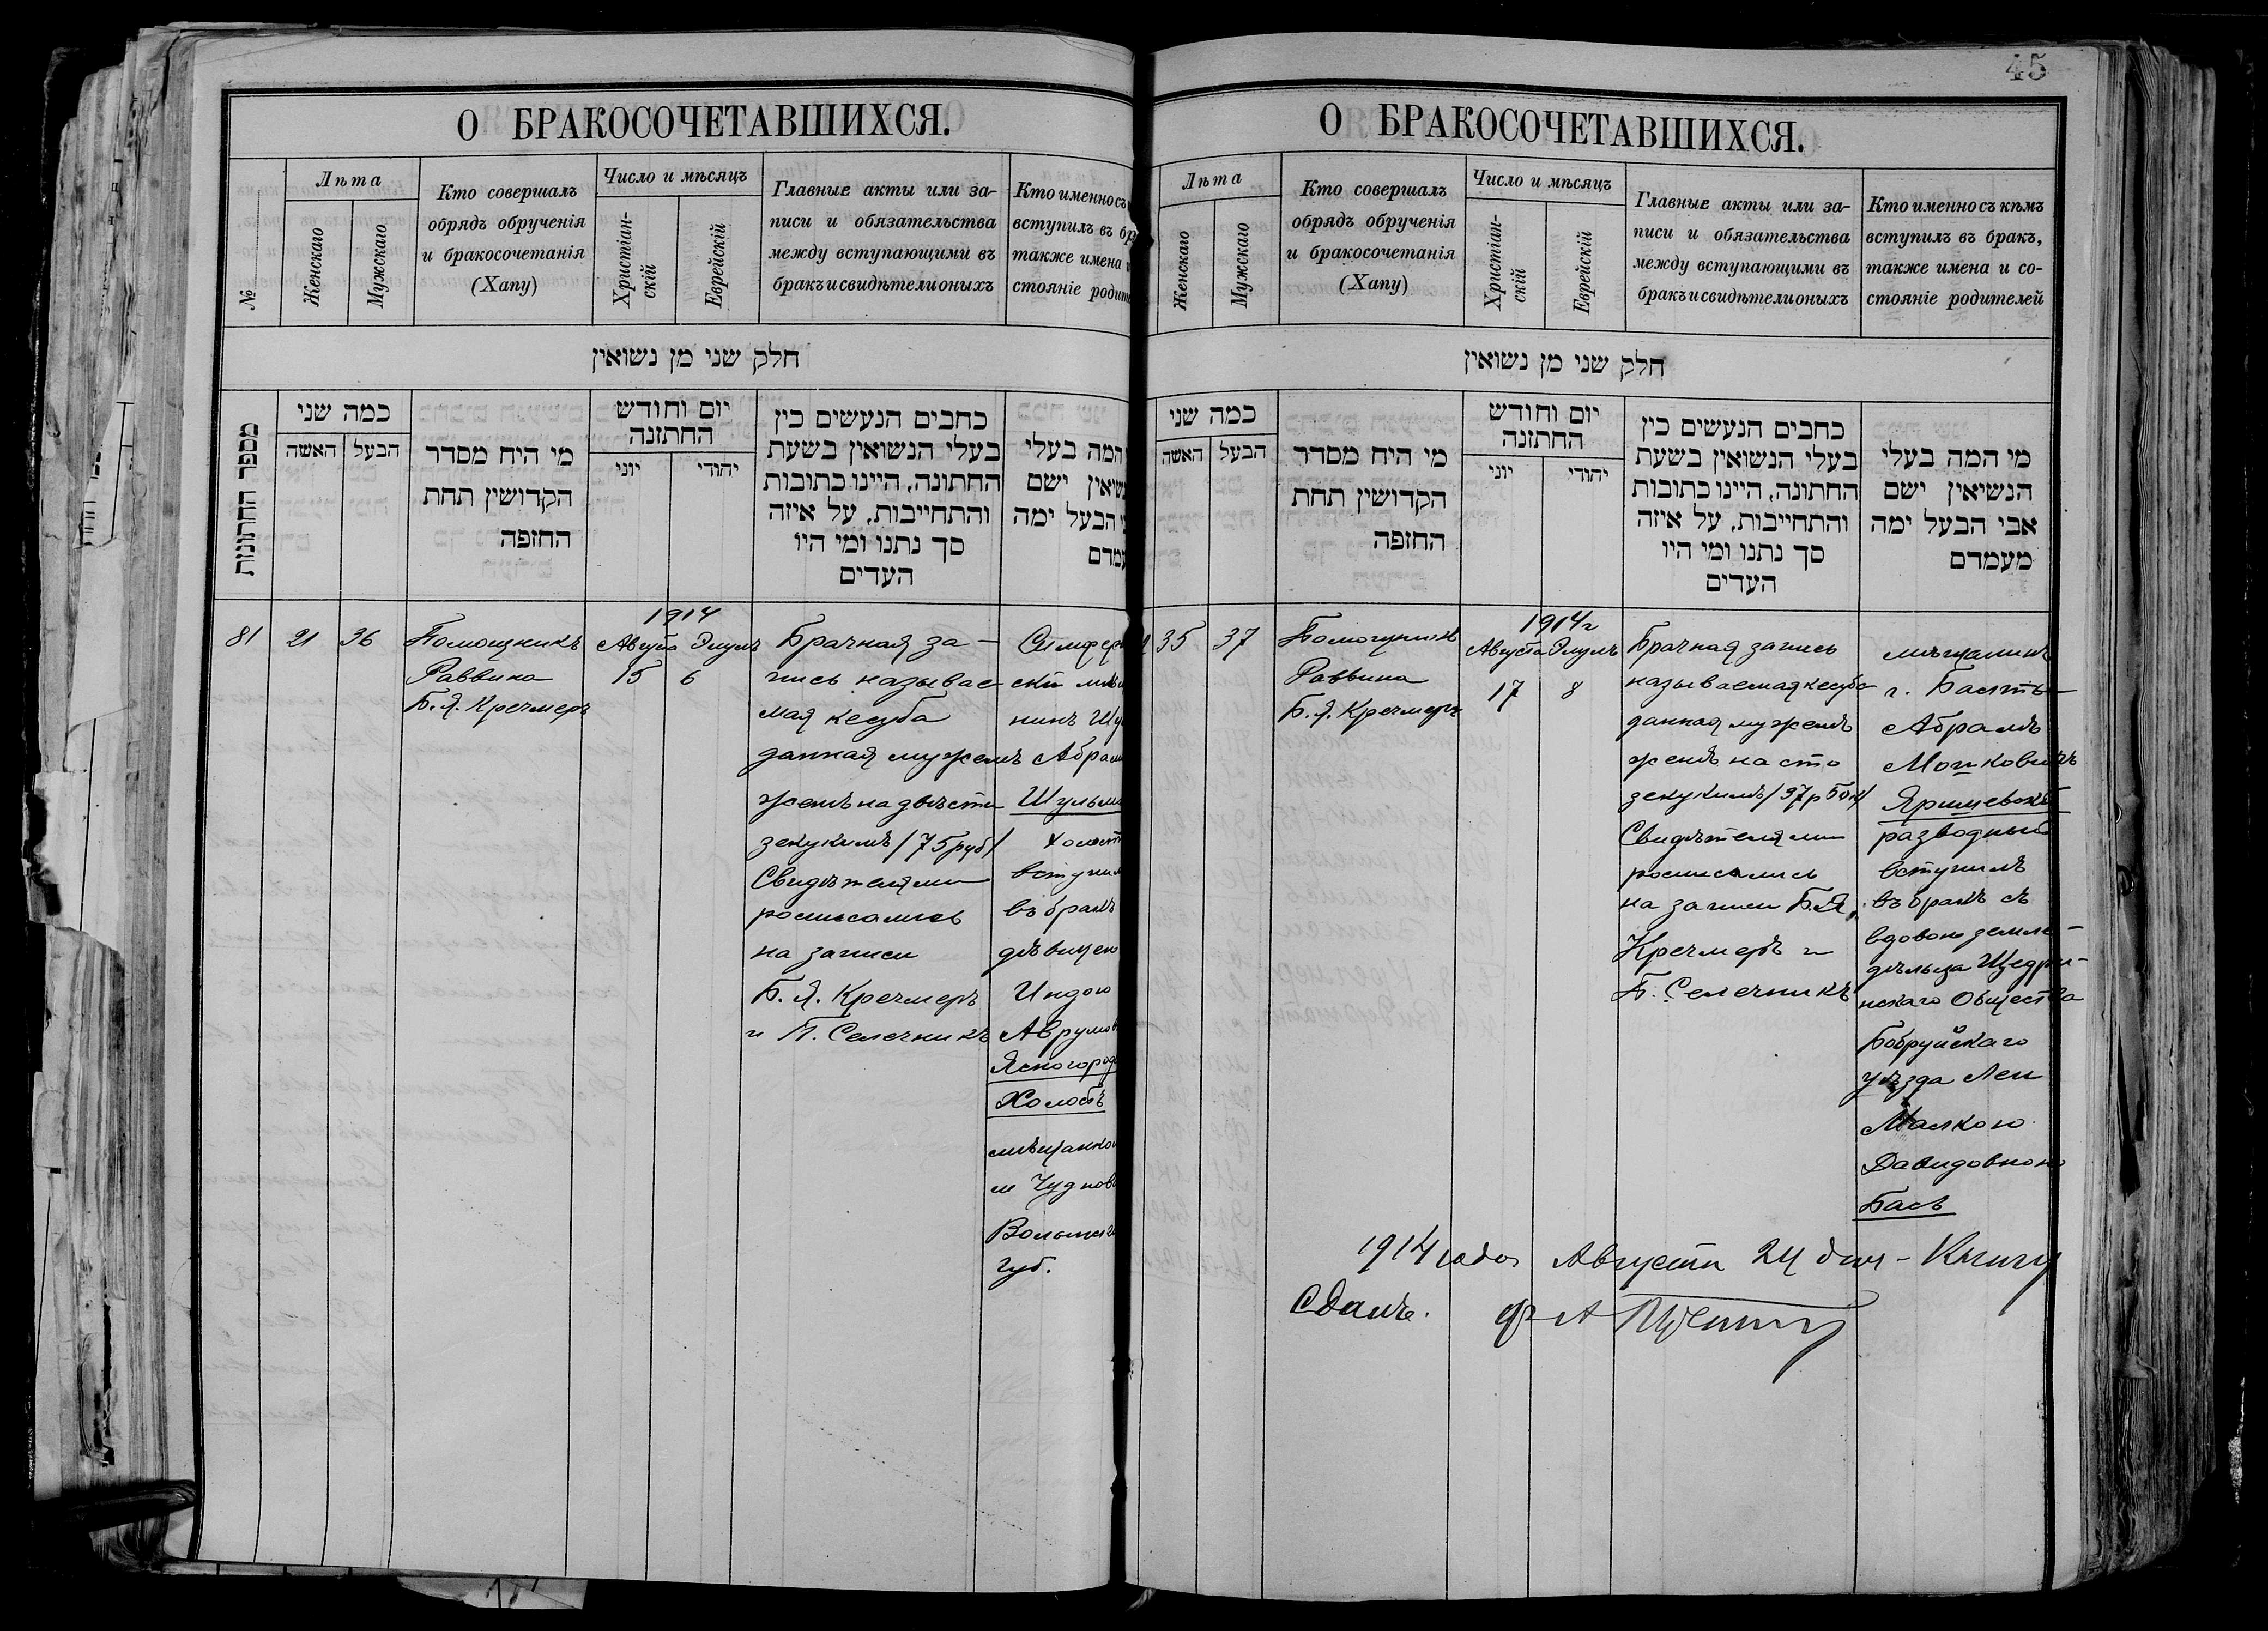 45
О БРАКОСОЧЕТАВШИХСЯ.
№
Лѣта
Женскаго
Мужскаго
Кто совершалъ
обрядъ обрученія
и бракосочетанія
(Хапу)
Число и мѣсяцъ
Христіан-
скій
Еврейскій
Главные акты или за-
писи и обязательства
между вступающими въ
бракъ и свидѣтели оныхъ
Кто именно съ
вступилъ въ бр
также имена и
стояніе родит
חלק שני מן נשואין
מספר החתונות
כמה שני
האשה
הבעל
מי היח מסדר
הקדושין תחת
החופה
יום וחודש
החתונה
יוני
יהודי
כחבים הנעשים כין
בעלי הנשואין בשעת
החתונה, היינו כתובות
והתחייבות, על איזה
סך נתנו ומי היו
העדים
המה בעלי
שיאין ישם
הבעל ימה
עמדם
81
21
36
Помощникъ
Раввина
Б. Я. Кречмеръ
1914
Августа Элулъ
15 6
Брачная за-
пись называе
мая кесуба
данная мужемъ
женѣ на двѣсти
зекукимъ /75 руб/
Свидѣтелями
росписались
на записи
Б. Я. Кречмеръ
и П. Селечникъ
Симферо
скій мѣщ
нинъ Шу
Абрам
Шульма
холост
вступил
въ бракъ
дѣвицею
Индою
Аврумов
Ясногород
Холостъ
мѣщанкой
м Чуднов
Волынск
губ.
О БРАКОСОЧЕТАВШИХСЯ.
Лѣта
Женскаго
Мужскаго
Кто совершалъ
обрядъ обрученія
и бракосочетанія
(Хапу)
Число и мѣсяцъ
Христіан-
скій
Еврейскій
Главные акты или за-
писи и обязательства
между вступающими въ
бракъ и свидѣтели оныхъ
Кто именно съ кѣмъ
вступилъ въ бракъ,
также имена и со-
стояніе родителей
חלק שני מן נשואין
כמה שני
האשה
הבעל
מי היח מסדר
הקדושין תחת
החופה
יום וחודש
החתונה
יוני
יהודי
כחבים הנעשים כין
בעלי הנשואין בשעת
החתונה, היינו כתובות
והתחייבות, על איזה
סך נתנו ומי היו
העדים
מי המה בעלי
הנשיאין ישם
אבי הבעל ימה
מעמדם
35
37
Помощникъ
Раввина
Б. Я. Кречмеръ
1914 г
Августа Элулъ
17 8
Брачная запись
называемая кесуба
данная мужемъ
женѣ на сто
зекукимъ /37 р 50 к/
Свидѣтелями
росписались
на записи Б. Я.
Кречмеръ и
П. Селечникъ
мѣщанинъ
г. Балты
Абрамъ
Мошковичъ
Яришевскій
разводный
вступилъ
въ бракъ съ
вдовою земле-
дѣльца Щедри-
нскаго Общества
Бобруйскаго
уѣзда Леи
Малкою
Давидовною
Басъ
1914 года Августа 24 дня - Книгу
Сдалъ.